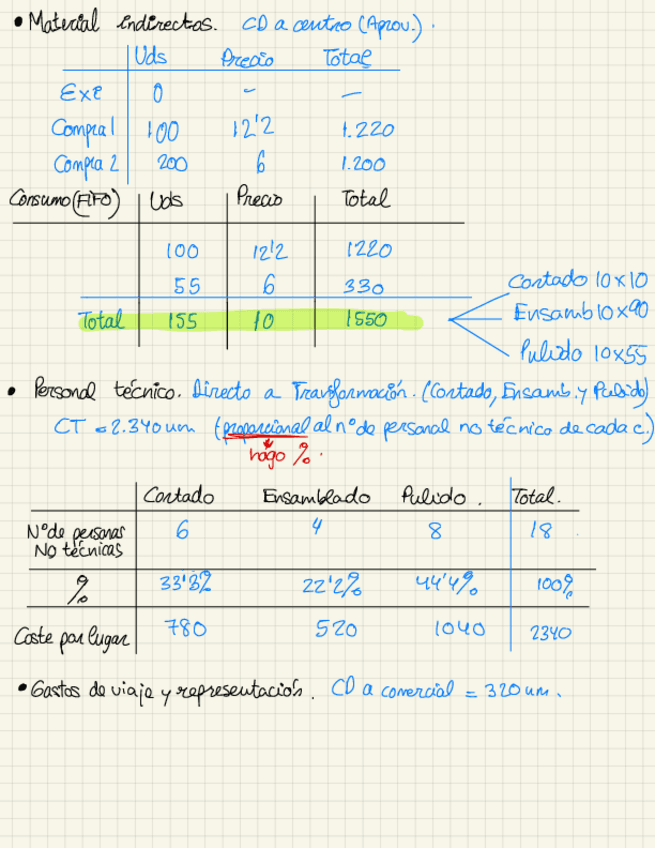 • Material indirectos. CD a centro (Aprov.).
Uds Precio Total
Exi 0 - —
Compra 1 100 12'2 1.220
Compra 2 200 6 1.200
Consumo (FIFO) Uds Precio Total
100 12'2 1220
55 6 330
Total 155 10 1550
Cortado 10x10
Ensamb 10x90
Pulido 10x55
• Personal técnico. Directo a Transformación. (Cortado, Ensamb. y Pulido)
CT = 2.340 um (proporcional al nº de personal no técnico de cada c.)
hago %.
Cortado Ensamblado Pulido. Total.
Nº de personas NO técnicas 6 4 8 18
% 33'3% 22'2% 44'4% 100%
Coste por lugar 780 520 1040 2340
• Gastos de viaje y representación. CD a comercial = 320 um.